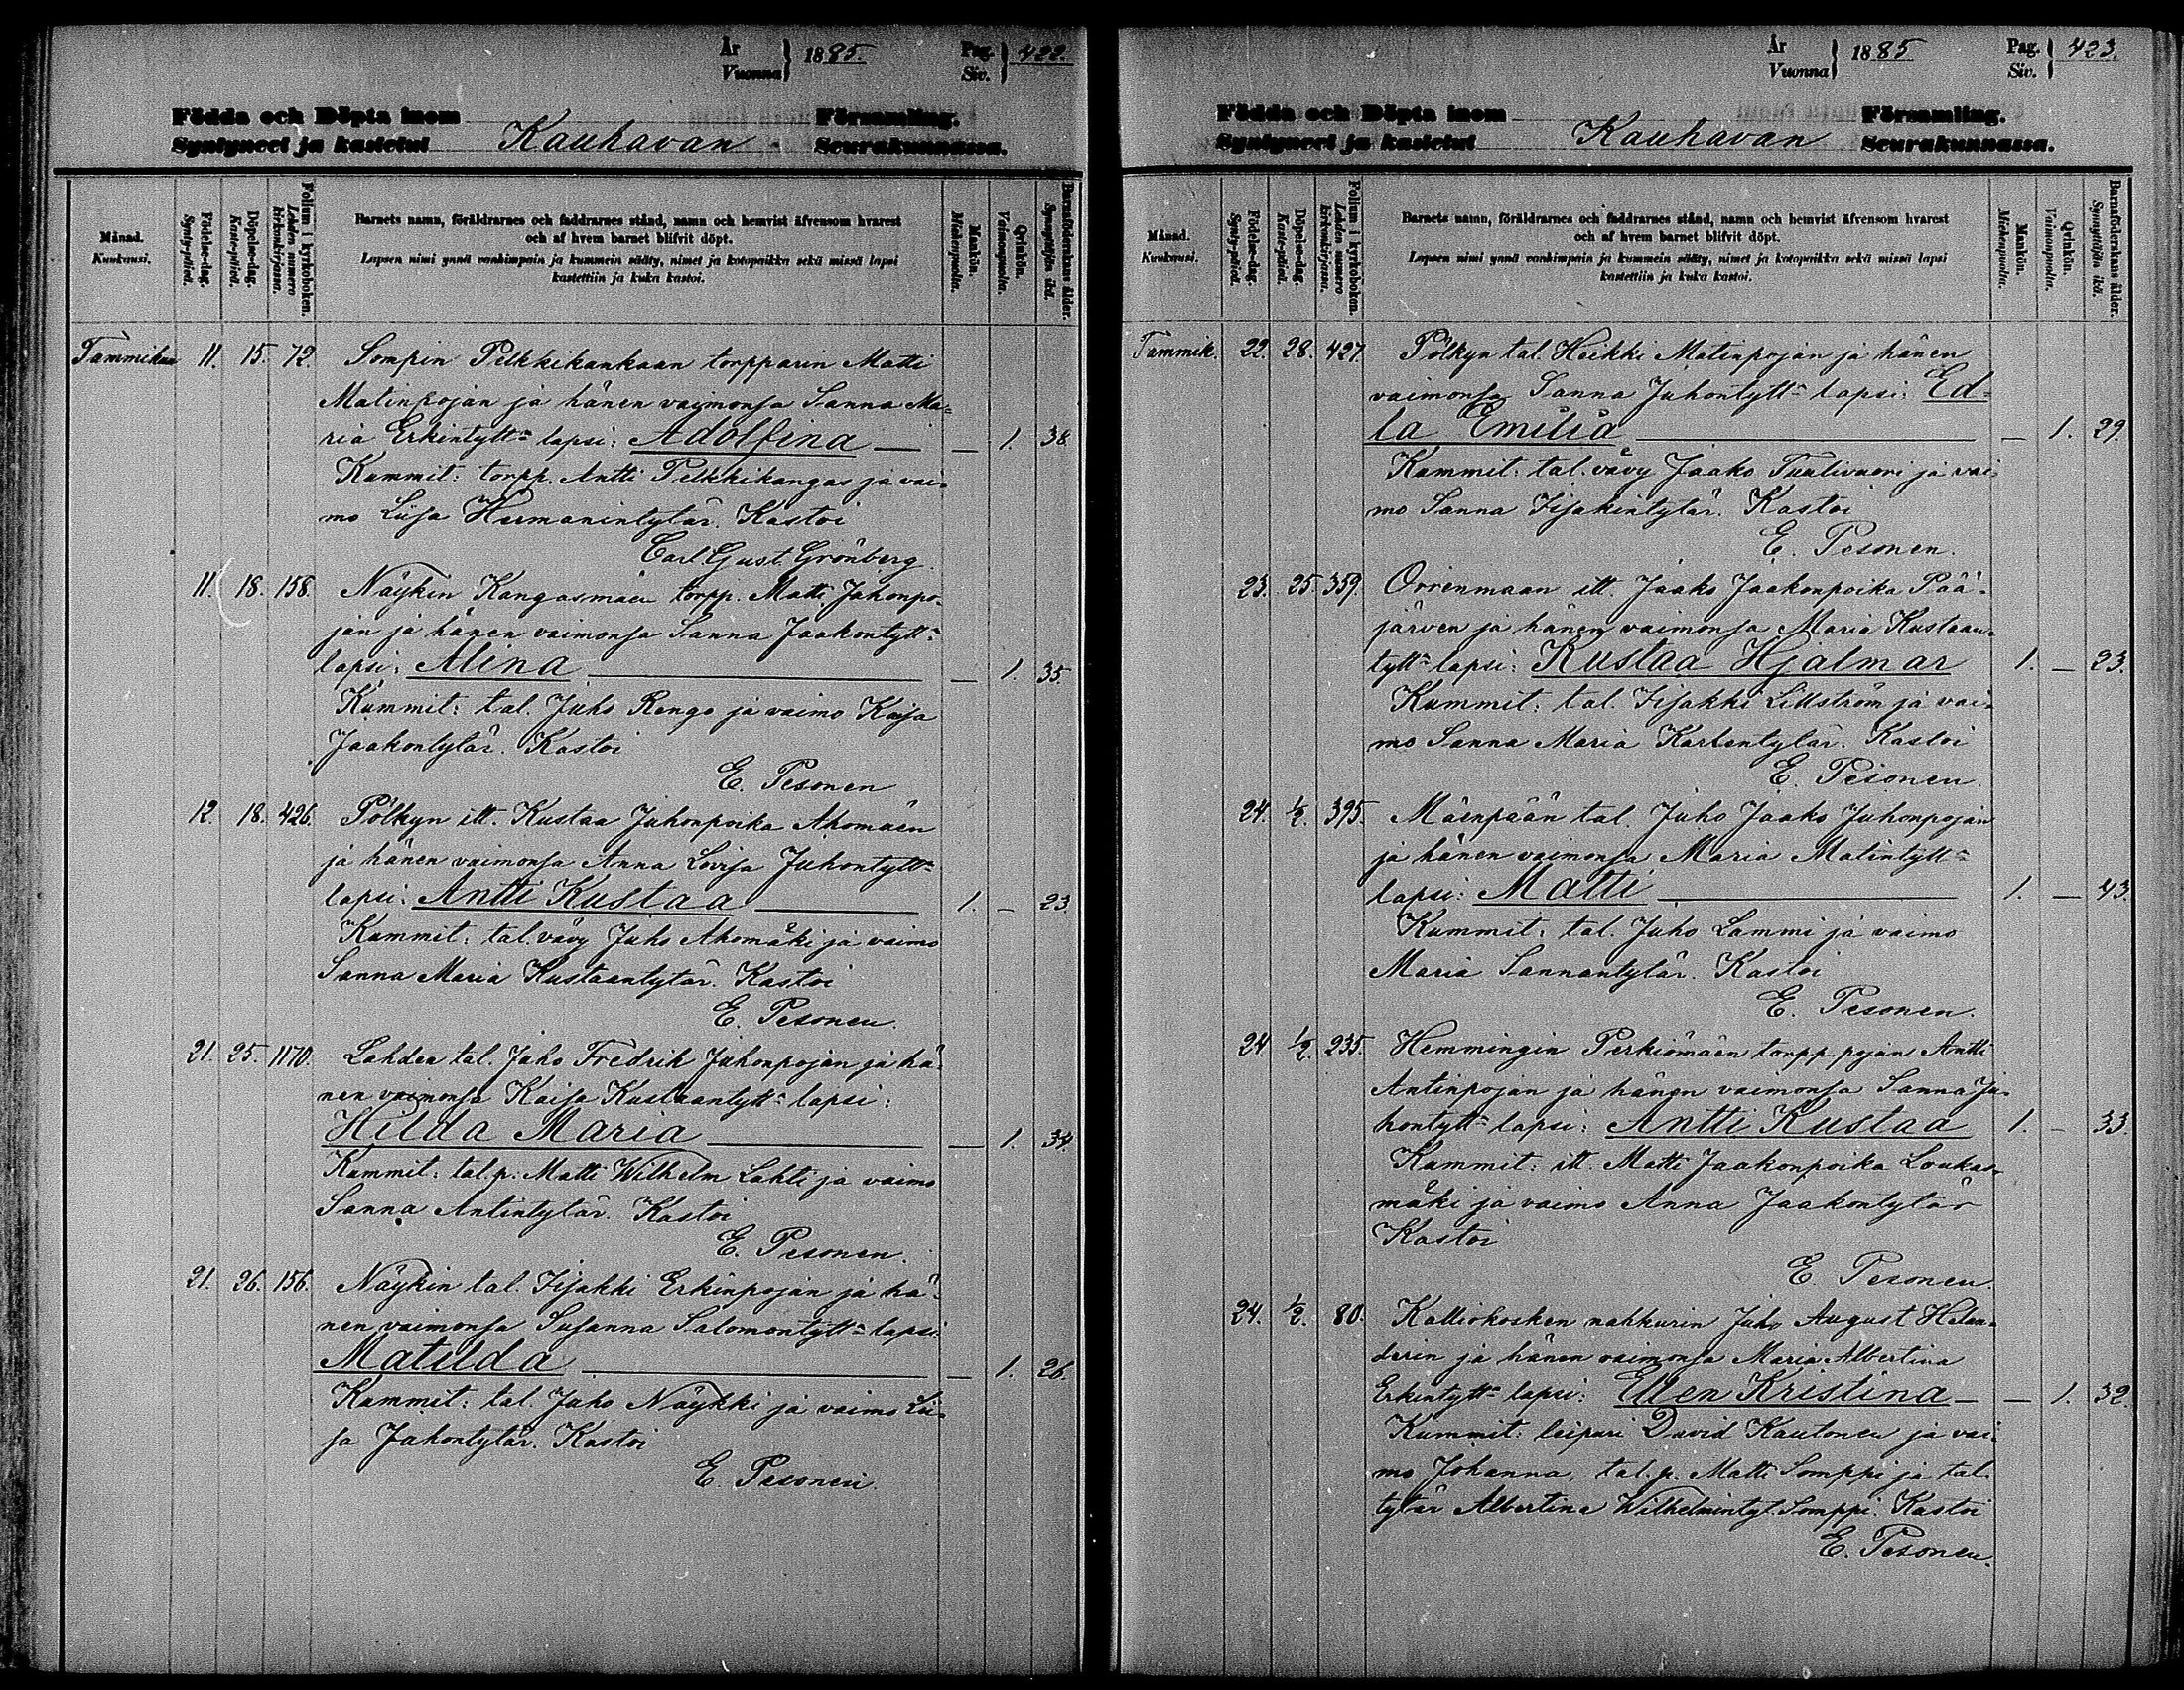 År
Vuonna } 1885. Pag.
Siv. } 422.
Födda och Döpta inom Församling.
Syntyneet ja kastetut Kauhavan Seurakunnassa.
Månad.
Kuukausi.
Födelse-dag.
Synty-päivä.
Döpelse-dag.
Kaste-päivä.
Folium i kyrkoboken.
Lehden numero
kirkonkirjassa.
Barnets namn, föräldrarnes och faddrarnes stånd, namn och hemvist äfvensom hvarest
och af hvem barnet blifvit döpt.
Lapsen nimi ynnä vanhimpain ja kummein sääty, nimet ja kotopaikka sekä missä lapsi
kastettiin ja kuka kastoi.
Mankön.
Miehenpuolia.
Qvinkön.
Vaimonpuolia.
Barnaföderskans ålder.
Synnyttäjän ikä.
Tammikuu 11. 15. 72. Sompin Pelkkikankaan torpparin Matti
Matinpojan ja hänen vaimonsa Sanna Ma=
ria Erkintytt=n lapsi: Adolfina — — 1. 38.
Kummit: torpp. Antti Pelkkikangas ja vai=
mo Liisa Hermanintytär. Kastoi
Carl Gust. Grönberg.
11. 18. 158. Näykin Kangasmäen torpp. Matti Juhonpo=
jan ja hänen vaimonsa Sanna Jaakontytt=n
lapsi: Alina — — 1. 35.
Kummit: tal. Juho Rengo ja vaimo Kaisa
Jaakontytär. Kastoi
E. Pesonen
12. 18. 426. Pölkyn itt. Kustaa Juhonpoika Ahomäen
ja hänen vaimonsa Anna Lovisa Juhontytt=n
lapsi: Antti Kustaa — 1. — 23.
Kummit: tal. vävy Juho Ahomäki ja vaimo
Sanna Maria Kustaantytär. Kastoi
E. Pesonen.
21. 25. 1170. Lahden tal. Juho Fredrik Juhonpojan ja hä=
nen vaimonsa Kaisa Kustaantytt=n lapsi:
Hilda Maria — — 1. 34.
Kummit: tal. p. Matti Wilhelm Lahti ja vaimo
Sanna Antintytär. Kastoi
E. Pesonen.
21. 26. 156. Näykin tal. Iisakki Erkinpojan ja hä=
nen vaimonsa Susanna Salomontytt=n lapsi:
Matilda — — 1. 26.
Kummit: tal. Juho Näykki ja vaimo Lii=
sa Juhontytär. Kastoi
E. Pesonen.
År
Vuonna } 1885 Pag.
Siv. } 423.
Födda och Döpta inom Församling.
Syntyneet ja kastetut Kauhavan Seurakunnassa.
Månad.
Kuukausi.
Födelse-dag.
Synty-päivä.
Döpelse-dag.
Kaste-päivä.
Folium i kyrkoboken.
Lehden numero
kirkonkirjassa.
Barnets namn, föräldrarnes och faddrarnes stånd, namn och hemvist äfvensom hvarest
och af hvem barnet blifvit döpt.
Lapsen nimi ynnä vanhimpain ja kummein sääty, nimet ja kotopaikka sekä missä lapsi
kastettiin ja kuka kastoi.
Mankön.
Miehenpuolia.
Qvinkön.
Vaimonpuolia.
Barnaföderskans ålder.
Synnyttäjän ikä.
Tammik. 22. 28. 427. Pölkyn tal. Heikki Matinpojan ja hänen
vaimonsa Sanna Juhontytt=n lapsi: Ed=
la Emilia — — 1. 29.
Kummit: tal. vävy Jaako Tuulivuori ja vai=
mo Sanna Iisakintytär. Kastoi
E. Pesonen.
23. 25. 359. Orrenmaan itt. Jaako Jaakonpoika Pää=
järven ja hänen vaimonsa Maria Kustaan=
tytt=n lapsi: Kustaa Hjalmar 1. — 23.
Kummit: tal. Iisakki Lillström ja vai=
mo Sanna Maria Karlentytär. Kastoi
E. Pesonen.
24. 1/2. 395. Mäenpään tal. Juho Jaako Juhonpojan
ja hänen vaimonsa Maria Matintytt=n
lapsi: Matti — 1. — 43.
Kummit: tal. Juho Lammi ja vaimo
Maria Sannantytär. Kastoi
E. Pesonen.
24. 1/2. 235. Hemmingin Perkiömäen torpp. pojan Antti
Antinpojan ja hänen vaimonsa Sanna Ju=
hontytt=n lapsi: Antti Kustaa 1. — 33.
Kummit: itt. Matti Jaakonpoika Loukas=
mäki ja vaimo Anna Jaakontytär
Kastoi
E. Pesonen.
24. 1/2. 80. Kalliokosken nahkurin Juho August Helan=
derin ja hänen vaimonsa Maria Albertina
Erkintytt=n lapsi: Ellen Kristina — — 1. 32.
Kummit: leipuri David Kautonen ja vai=
mo Johanna, tal. p. Matti Somppi ja tal.
tytär Albertina Wilhelmintyt. Somppi. Kastoi
E. Pesonen.